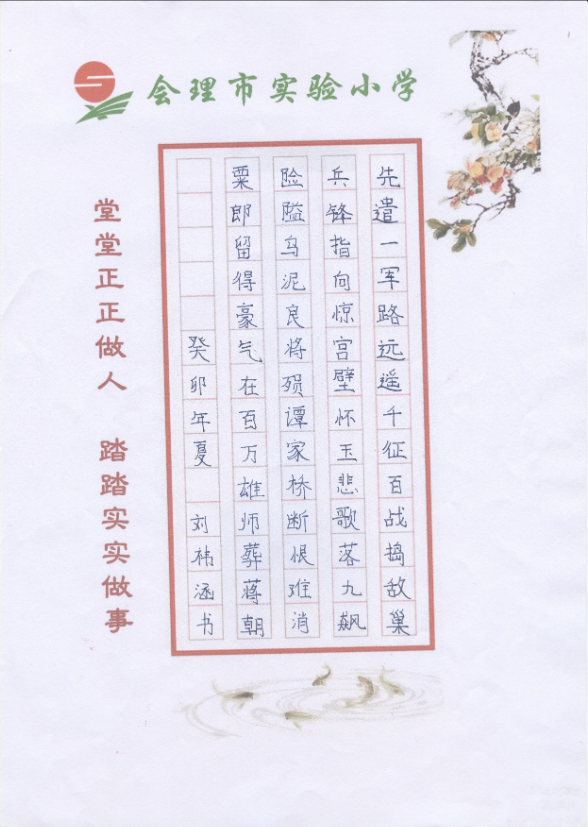 会理市实验小学
先遣一军路远遥千征百战捣敌巢
兵锋指向惊宫壁怀玉悲歌落九飙
险隘乌泥良将殒谭家桥断恨难消
粟郎留得豪气在百万雄师葬蒋朝
癸卯年夏 刘祎涵书
堂堂正正做人 踏踏实实做事